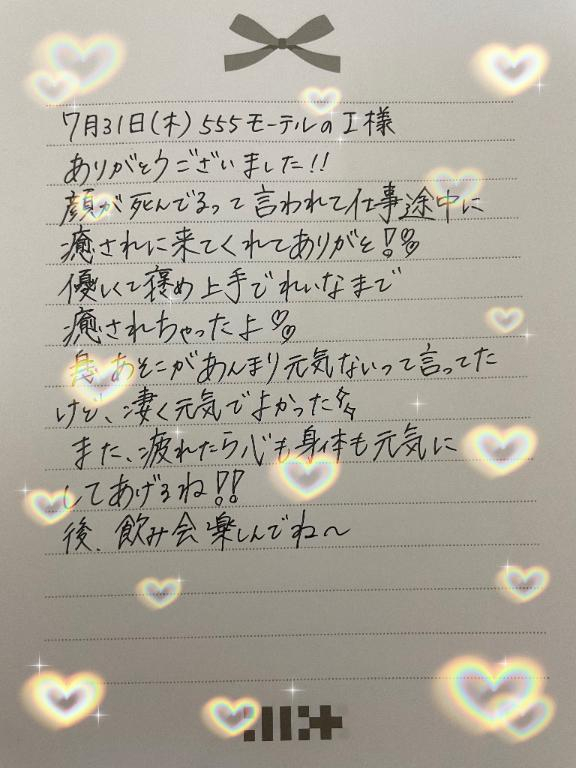 7月31日(木) 555モーテルのI様
ありがとうございました!!
顔が死んでるって言われて仕事途中に
癒されに来てくれてありがと!♡♡
優しくて褒め上手でれいなまで
癒されちゃったよ♡♡
あそこがあんまり元気ないって言ってた
けど、凄く元気でよかった
また、疲れたら心も身体も元気に
してあげるね!!
後、飲み会楽しんでね〜